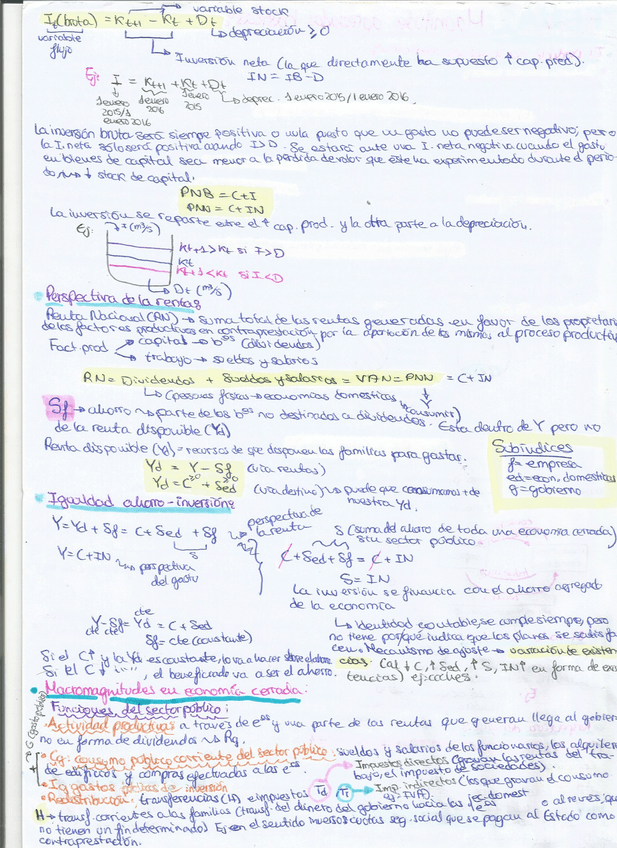 variable stock
I_t(bruta) = K_t+1 - K_t + D_t
variable flujo
depreciación ≥ 0
Inversión neta (la que directamente ha supuesto ↑ cap. prod).
IN = IB - D
Ej: I = K_t+1 + K_t + D_t
1 enero 2015/1 enero 2016
1 enero 2016
1 enero 2015
deprec. 1 enero 2015/1 enero 2016.
La inversión bruta será siempre positiva o nula puesto que un gasto no puede ser negativo, pero
la I. neta sólo será positiva cuando I>D. Se estará ante una I. neta negativa cuando el gasto
en bienes de capital sea menor a la pérdida de valor que éste ha experimentado durante el perio-
do ↓ stock de capital.
PNB = C+I
PNN = C+IN
La inversión se reparte entre el ↑ cap. prod. y la otra parte a la depreciación.
Ej: I (m³/s)
K_t+1 > K_t si I>D
K_t
K_t+1 < K_t si I<D
D_t (m³/s)
Perspectiva de la rentas
Renta Nacional (RN) → suma total de las rentas generadas en favor de los propietari
de los factores productivos en contraprestación por la aportación de los mismos, al proceso productiv
Fact. prod
capital → b^os (dividendos)
trabajo → sueldos y salarios
RN = Dividendos + Sueldos y Salarios = VAN = PNN = C + IN
(personas físicas → economías domésticas)
Y
(consumir)
Sf → ahorro → parte de los b^os no destinados a dividendos. Esta dentro de Y pero no
de la renta disponible (Yd)
Renta disponible (Yd) = recursos de que disponen las familias para gastar.
Yd = Y - Sf (vía rentas)
Yd = C + Sed (vía destino) → puede que consumamos + de
nuestra Yd.
Subíndices
f = empresa
ed = econ. domésticas
g = gobierno
Igualdad ahorro-inversión:
Y = Yd + Sf = C + Sed + Sf
S
perspectiva de la renta
Y = C + IN
perspectiva del gasto
S (suma del ahorro de toda una economía cerrada)
sin sector público
C + Sed + Sf = C + IN
S = IN
La inversión se financia con el ahorro agregado
de la economía
Y - Sf = Yd = C + Sed
cte
cte cte
Sf = cte (constante)
identidad contable, se cumple siempre, pero
no tiene porque indica que los planes se satisfa
cen. Mecanismo de ajuste → variación de existen
Si el C↑ y la Yd es constante, lo va a hacer
cias. (al ↓ C, ↑ Sed, ↑ S, IN↑ en forma de exis
Si el C↓ " " ", el beneficiado va a ser el ahorro.
tencias) ej: coches.
Macromagnitudes en economía cerrada:
Funciones del sector público:
G (gasto público)
Actividad productiva a través de e^as y una parte de las rentas que generan llega al gobier
no en forma de dividendos → Rg.
Cg: consumo público corriente del sector público: sueldos y salarios de los funcionarios, los alquiler
de edificios y compras efectuadas a las e^as.
Impuestos directos (gravan las rentas del tra-
bajo, el impuesto de sociedades).
Ig gastos de inversión
Td
Ti
Imp. indirectos (los que gravan el consumo
ej: IVA).
Redistribución: transferencias (H) e impuestos
H → transf. corrientes a las familias (transf. del dinero del gobierno hacia las ec. domest o al revés, que
no tienen un fin determinado) Ej en el sentido inverso: cuotas seg. social que se pagan al Estado como
contraprestación.